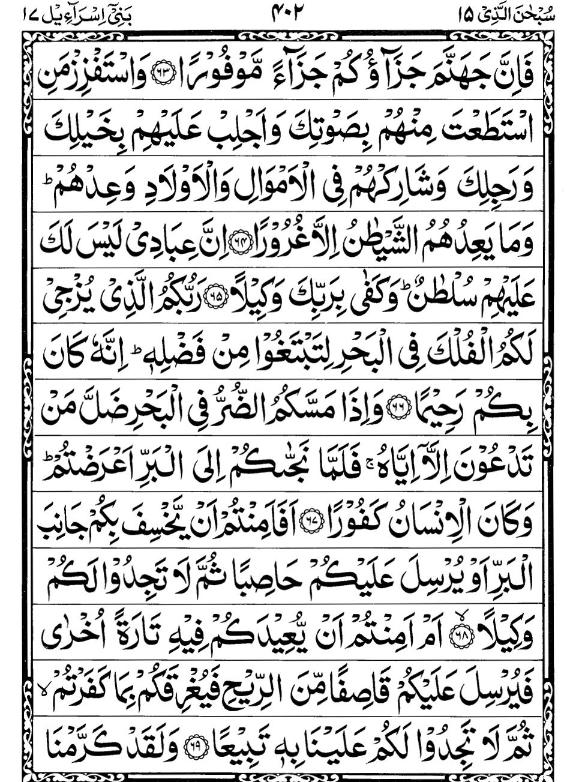 سُبْحٰنَ الَّذِیْۤ ۱۵ ۴۰۲ بَنِیْۤ اِسْرَآءِیْل ۱۷
فَاِنَّ جَهَنَّمَ جَزَآؤُكُمْ جَزَآءً مَّوْفُوْرًا ﴿۶۳﴾ وَاسْتَفْزِزْ مَنِ
اسْتَطَعْتَ مِنْهُمْ بِصَوْتِكَ وَاَجْلِبْ عَلَیْهِمْ بِخَیْلِكَ
وَرَجِلِكَ وَشَارِكْهُمْ فِی الْاَمْوَالِ وَالْاَوْلَادِ وَعِدْهُمْ ؕ
وَمَا یَعِدُهُمُ الشَّیْطٰنُ اِلَّا غُرُوْرًا ﴿۶۴﴾ اِنَّ عِبَادِیْ لَیْسَ لَكَ
عَلَیْهِمْ سُلْطٰنٌ ؕ وَكَفٰی بِرَبِّكَ وَكِیْلًا ﴿۶۵﴾ رَبُّكُمُ الَّذِیْ یُزْجِیْ
لَكُمُ الْفُلْكَ فِی الْبَحْرِ لِتَبْتَغُوْا مِنْ فَضْلِهٖ ؕ اِنَّهٗ كَانَ
بِكُمْ رَحِیْمًا ﴿۶۶﴾ وَاِذَا مَسَّكُمُ الضُّرُّ فِی الْبَحْرِ ضَلَّ مَنْ
تَدْعُوْنَ اِلَّاۤ اِیَّاهُ ۚ فَلَمَّا نَجّٰىكُمْ اِلَی الْبَرِّ اَعْرَضْتُمْ ؕ
وَكَانَ الْاِنْسَانُ كَفُوْرًا ﴿۶۷﴾ اَفَاَمِنْتُمْ اَنْ یَّخْسِفَ بِكُمْ جَانِبَ
الْبَرِّ اَوْ یُرْسِلَ عَلَیْكُمْ حَاصِبًا ثُمَّ لَا تَجِدُوْا لَكُمْ
وَكِیْلًا ﴿۶۸﴾ ۙ اَمْ اَمِنْتُمْ اَنْ یُّعِیْدَكُمْ فِیْهِ تَارَةً اُخْرٰی
فَیُرْسِلَ عَلَیْكُمْ قَاصِفًا مِّنَ الرِّیْحِ فَیُغْرِقَكُمْ بِمَا كَفَرْتُمْ ۙ
ثُمَّ لَا تَجِدُوْا لَكُمْ عَلَیْنَا بِهٖ تَبِیْعًا ﴿۶۹﴾ وَلَقَدْ كَرَّمْنَا